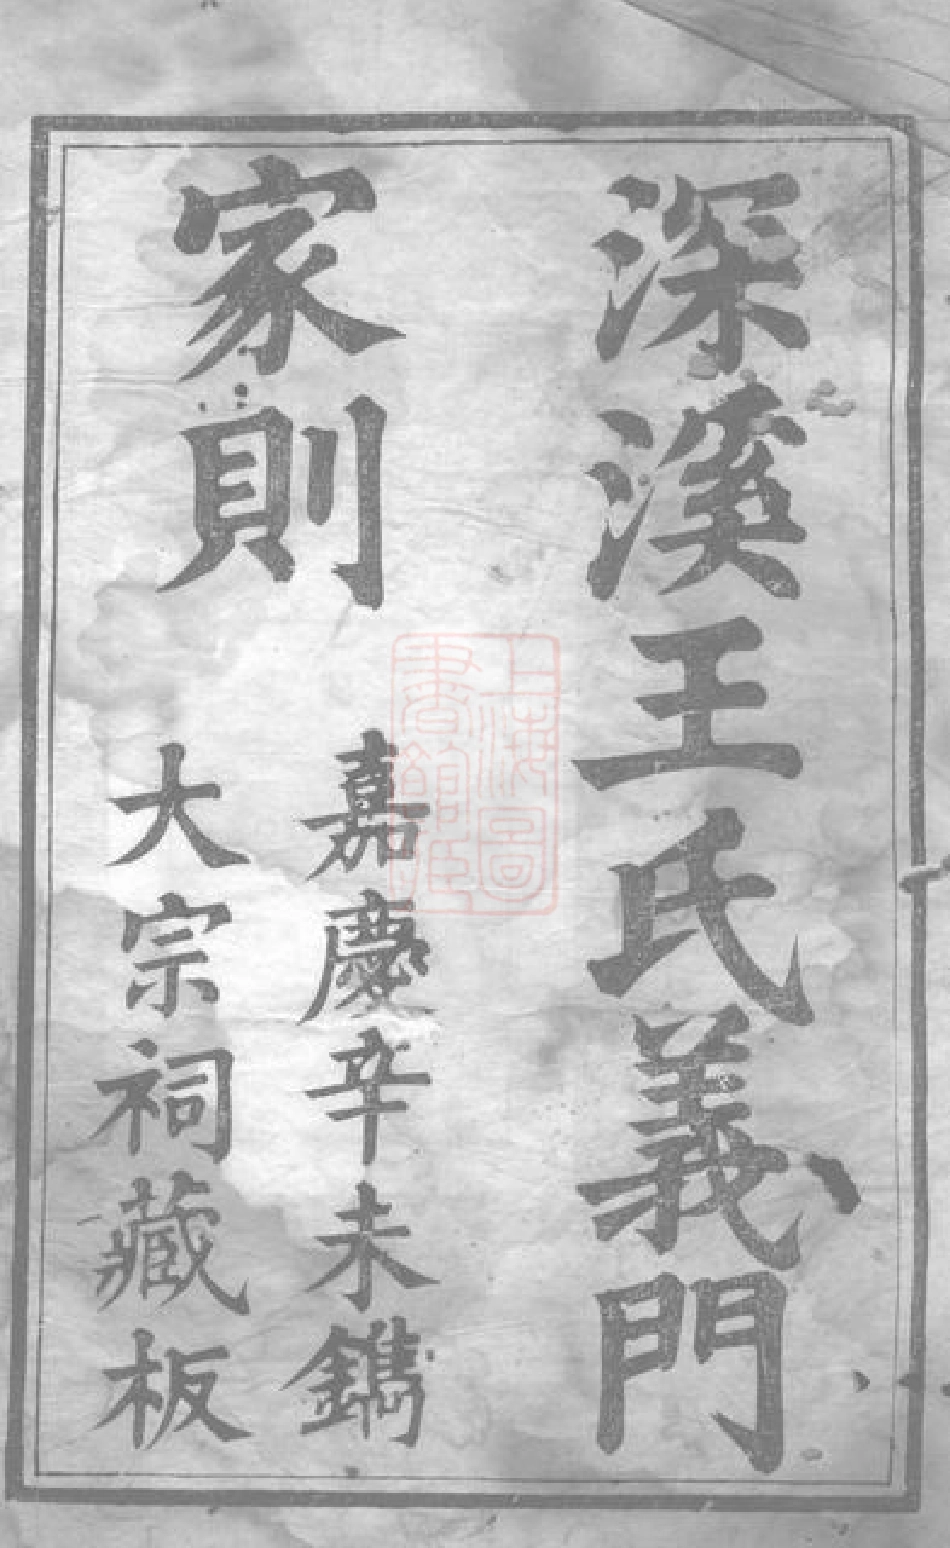 深溪王氏義門
家則
嘉慶辛未鐫
大宗祠藏板
上海圖書館藏